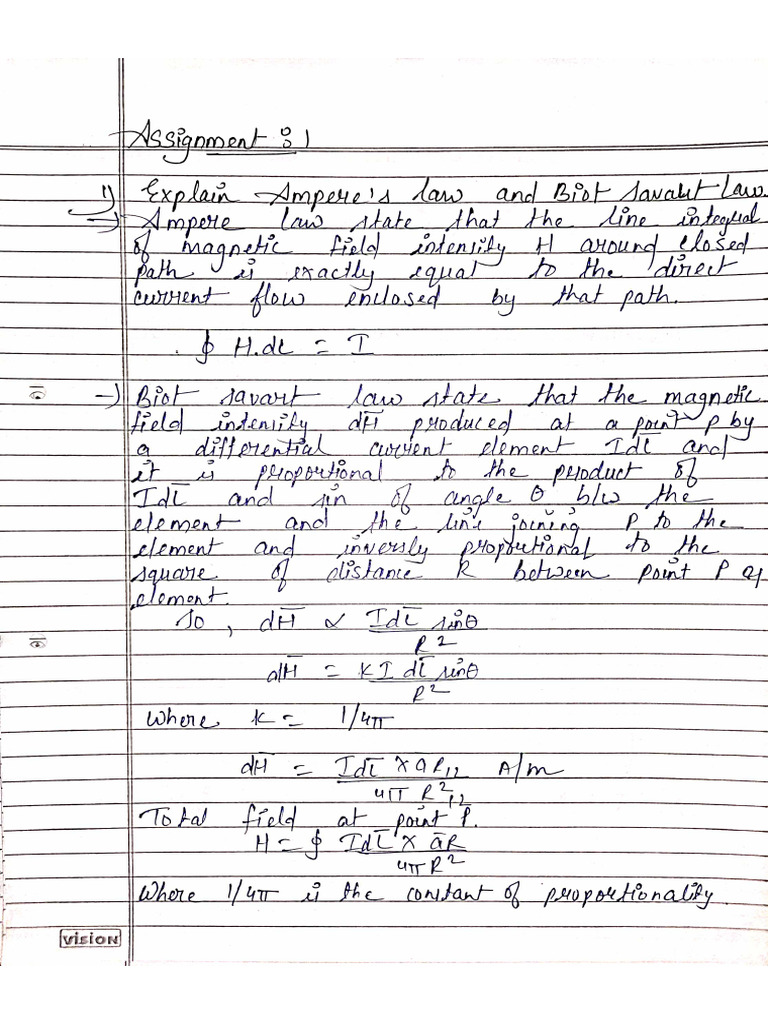 Assignment : 1
1) Explain Ampere's law and Biot Savart Law.
→ Ampere law state that the line integral
of magnetic field intensity H around closed
path is exactly equal to the direct
current flow enclosed by that path.
∮ H.dL = I
→ Biot savart law state that the magnetic
field intensify dH̅ produced at a point P by
a differential current element IdL and
it is proportional to the product of
IdL̅ and sin of angle θ b/w the
element and the line joining P to the
element and inversly proportional to the
square of distance R between point P &
element.
So, dH̅ ∝ IdL̅ sinθ / R²
dH̅ = K I dL̅ sinθ / R²
Where K = 1/4π
dH̅ = IdL̅ × aR₁₂ / 4π R²₁₂ A/m
Total field at point P.
H = ∮ IdL̅ × a̅R / 4πR²
Where 1/4π is the constant of proportionality.
Vision